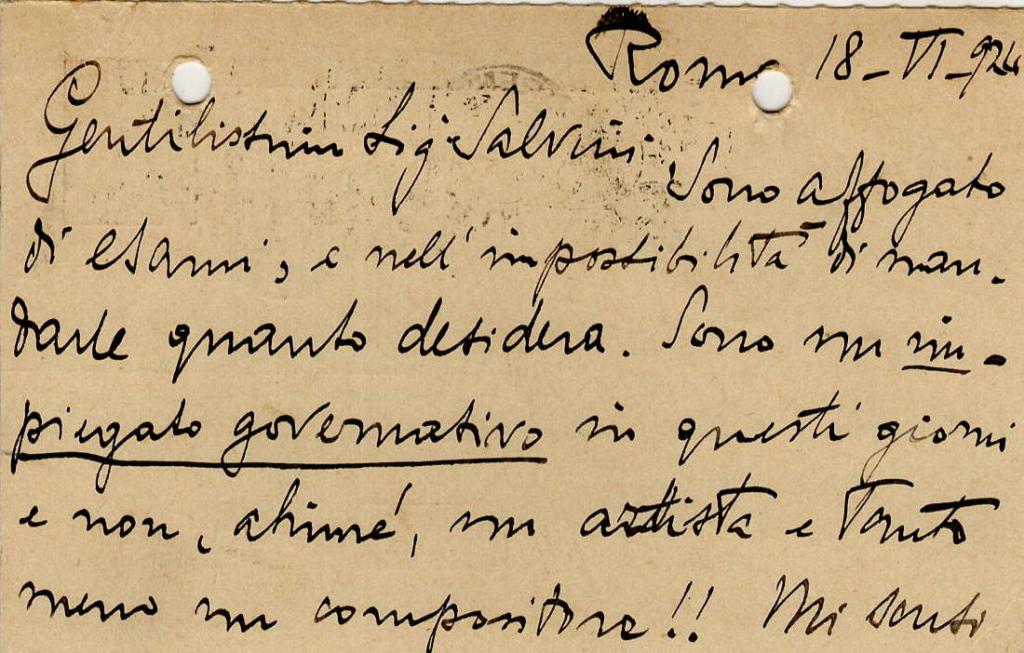 Roma 18-VI-924
Gentilissimo Sig Salvini
Sono affogato
di esami, e nell'impossibilità di man-
darle quanto desidera. Sono un im-
piegato governativo in questi giorni
e non, ahimé, un artista e tanto
meno un compositore!! Mi scusi